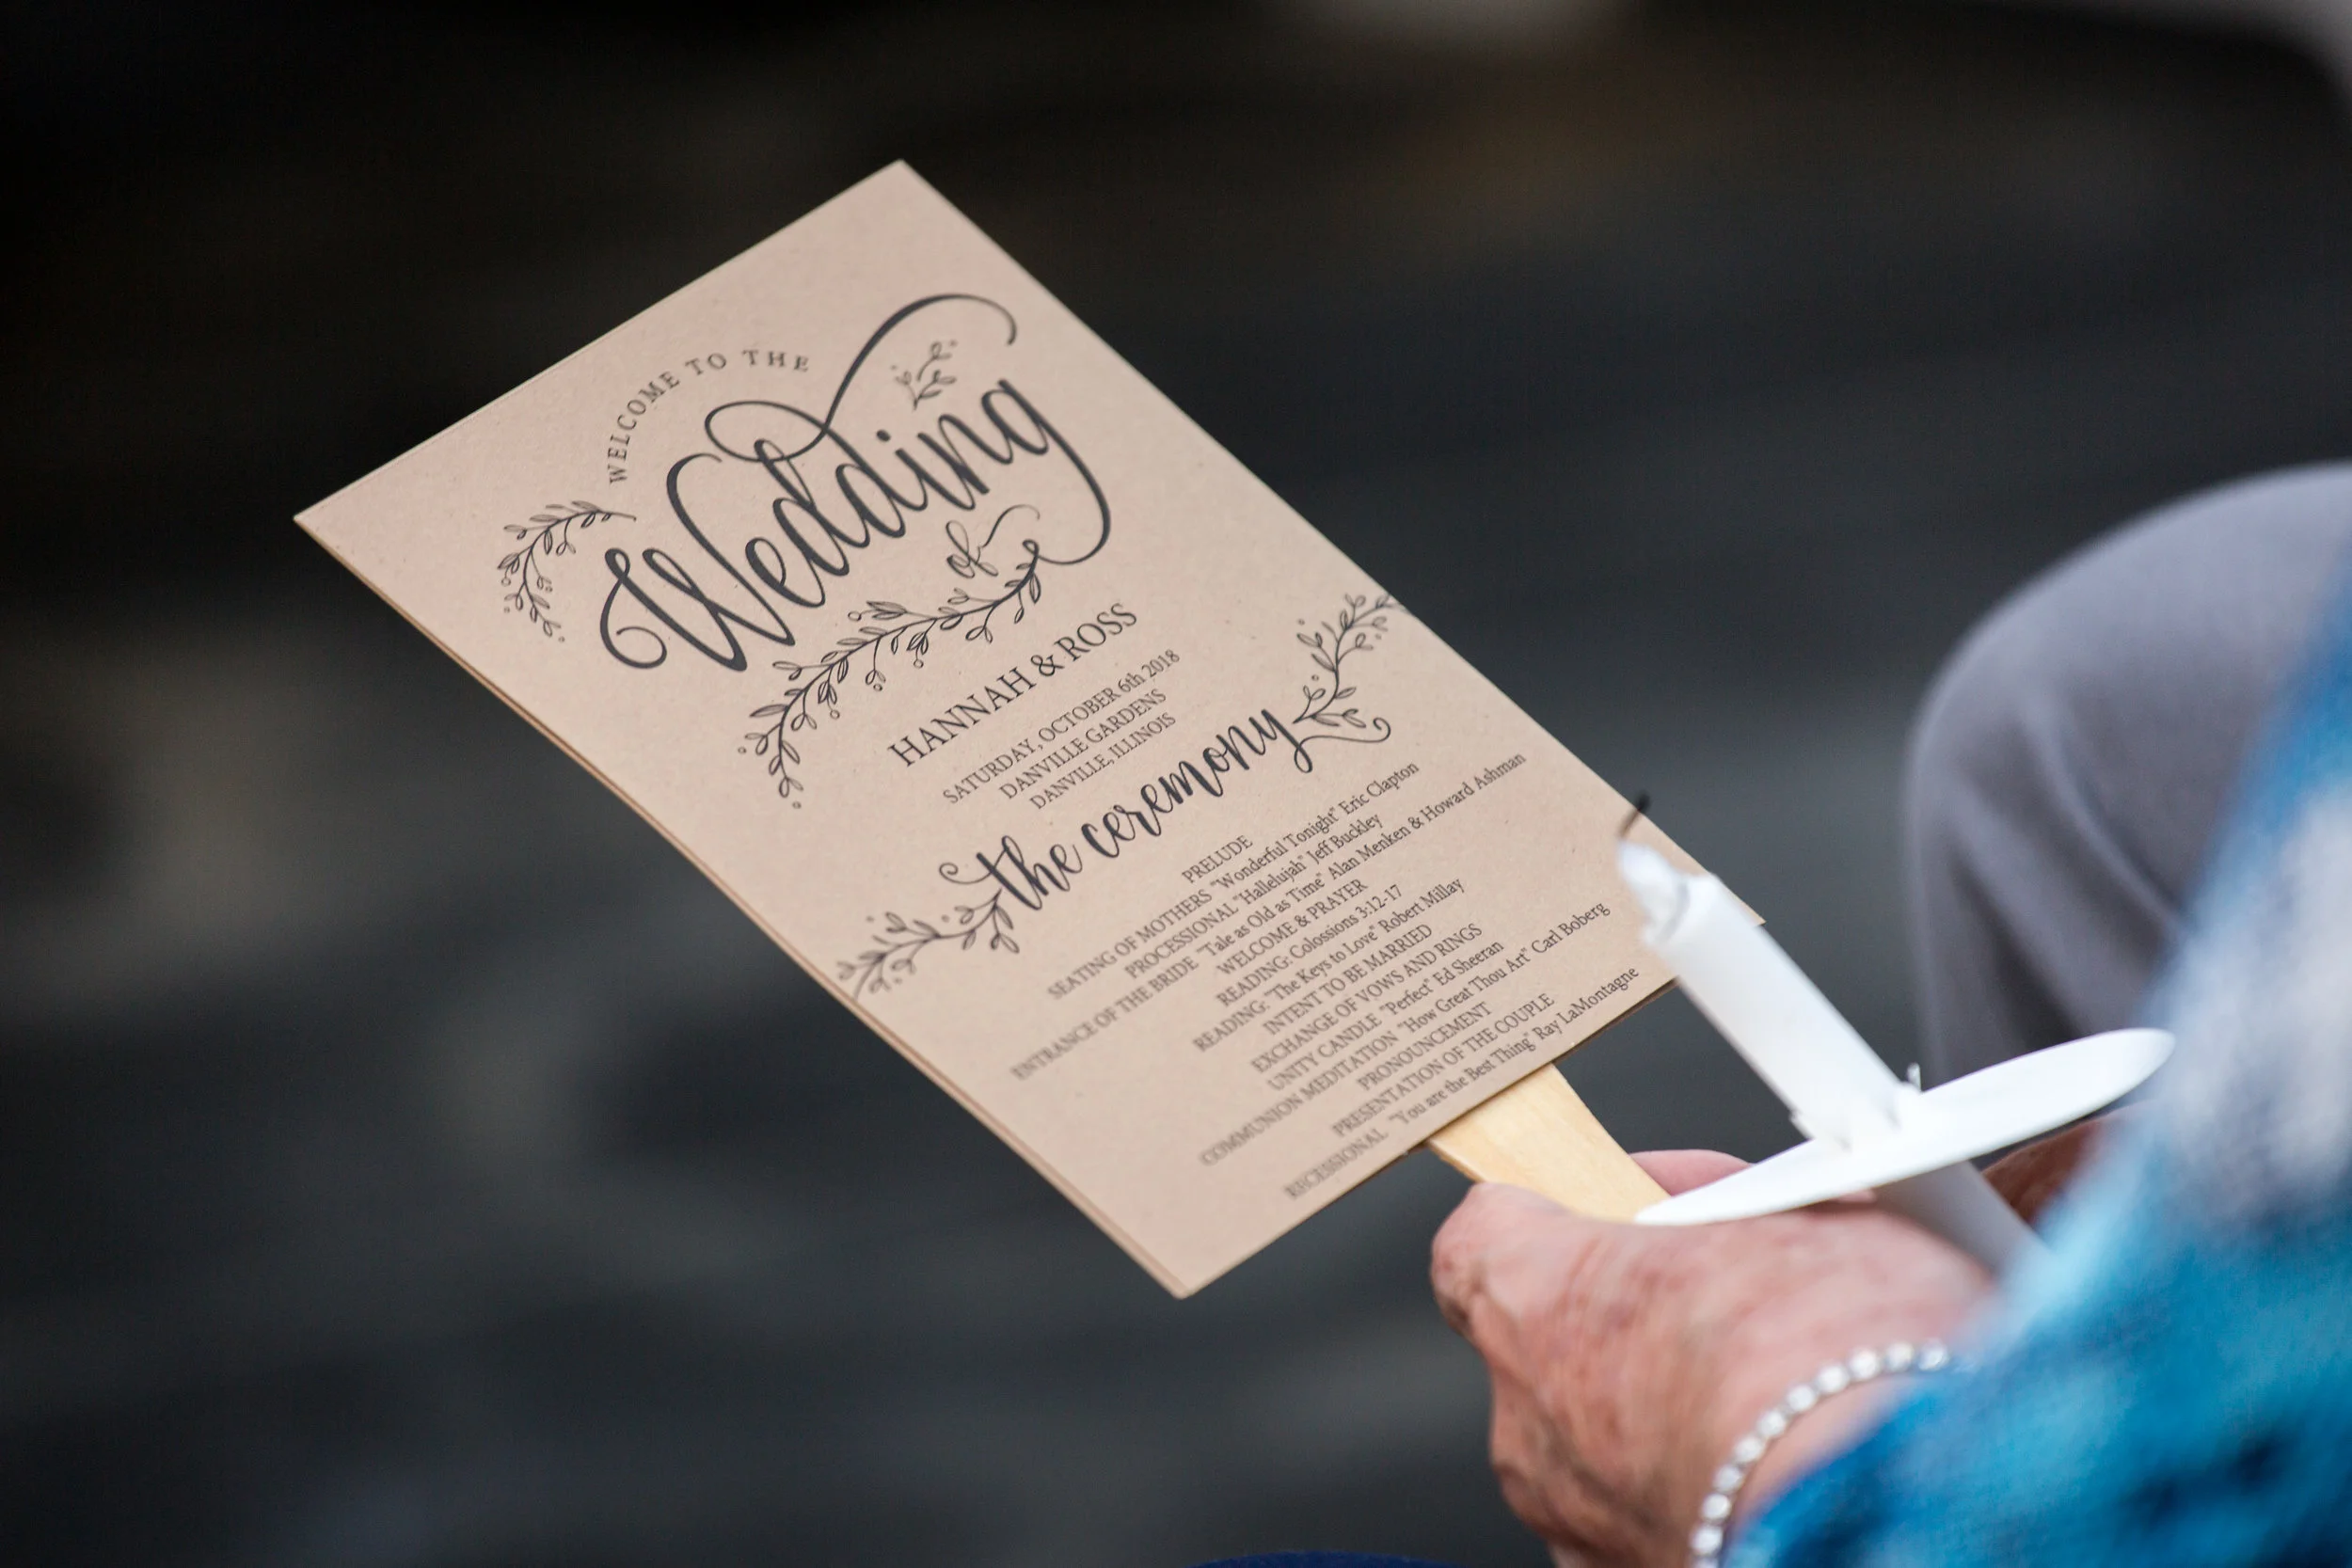 WELCOME TO THE
Wedding
of
HANNAH & ROSS
SATURDAY, OCTOBER 6th 2018
DANVILLE GARDENS
DANVILLE, ILLINOIS
the ceremony
PRELUDE
SEATING OF MOTHERS "Wonderful Tonight" Eric Clapton
PROCESSIONAL "Hallelujah" Jeff Buckley
ENTRANCE OF THE BRIDE "Tale as Old as Time" Alan Menken & Howard Ashman
WELCOME & PRAYER
READING: Colossions 3:12-17
READING: "The Keys to Love" Robert Millay
INTENT TO BE MARRIED
EXCHANGE OF VOWS AND RINGS
UNITY CANDLE "Perfect" Ed Sheeran
COMMUNION MEDITATION "How Great Thou Art" Carl Boberg
PRONOUNCEMENT
PRESENTATION OF THE COUPLE
RECESSIONAL "You are the Best Thing" Ray LaMontagne